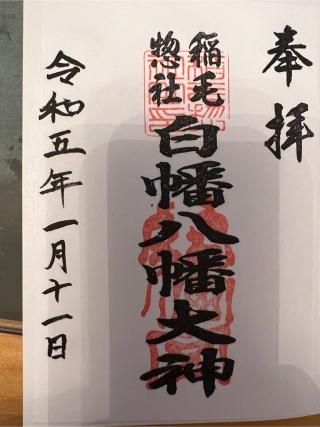 奉拝
稲毛
惣社
白幡八幡大神
令和五年一月十一日